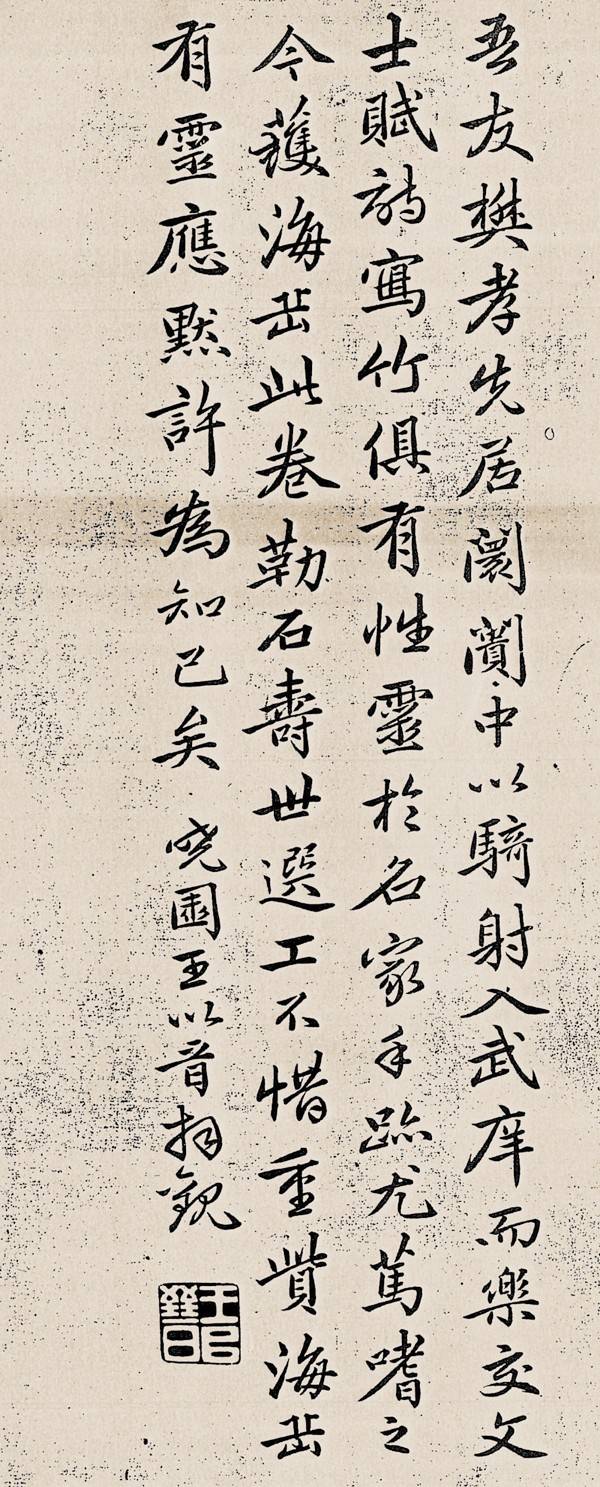 吾友樊孝先居闤闠中以騎射入武庠而樂交文
士賦詩寫竹俱有性靈於名家手跡尤篤嗜之
今獲海岳此卷勒石壽世選工不惜重貲海岳
有靈應默許為知己矣 曉園王以晉拜觀